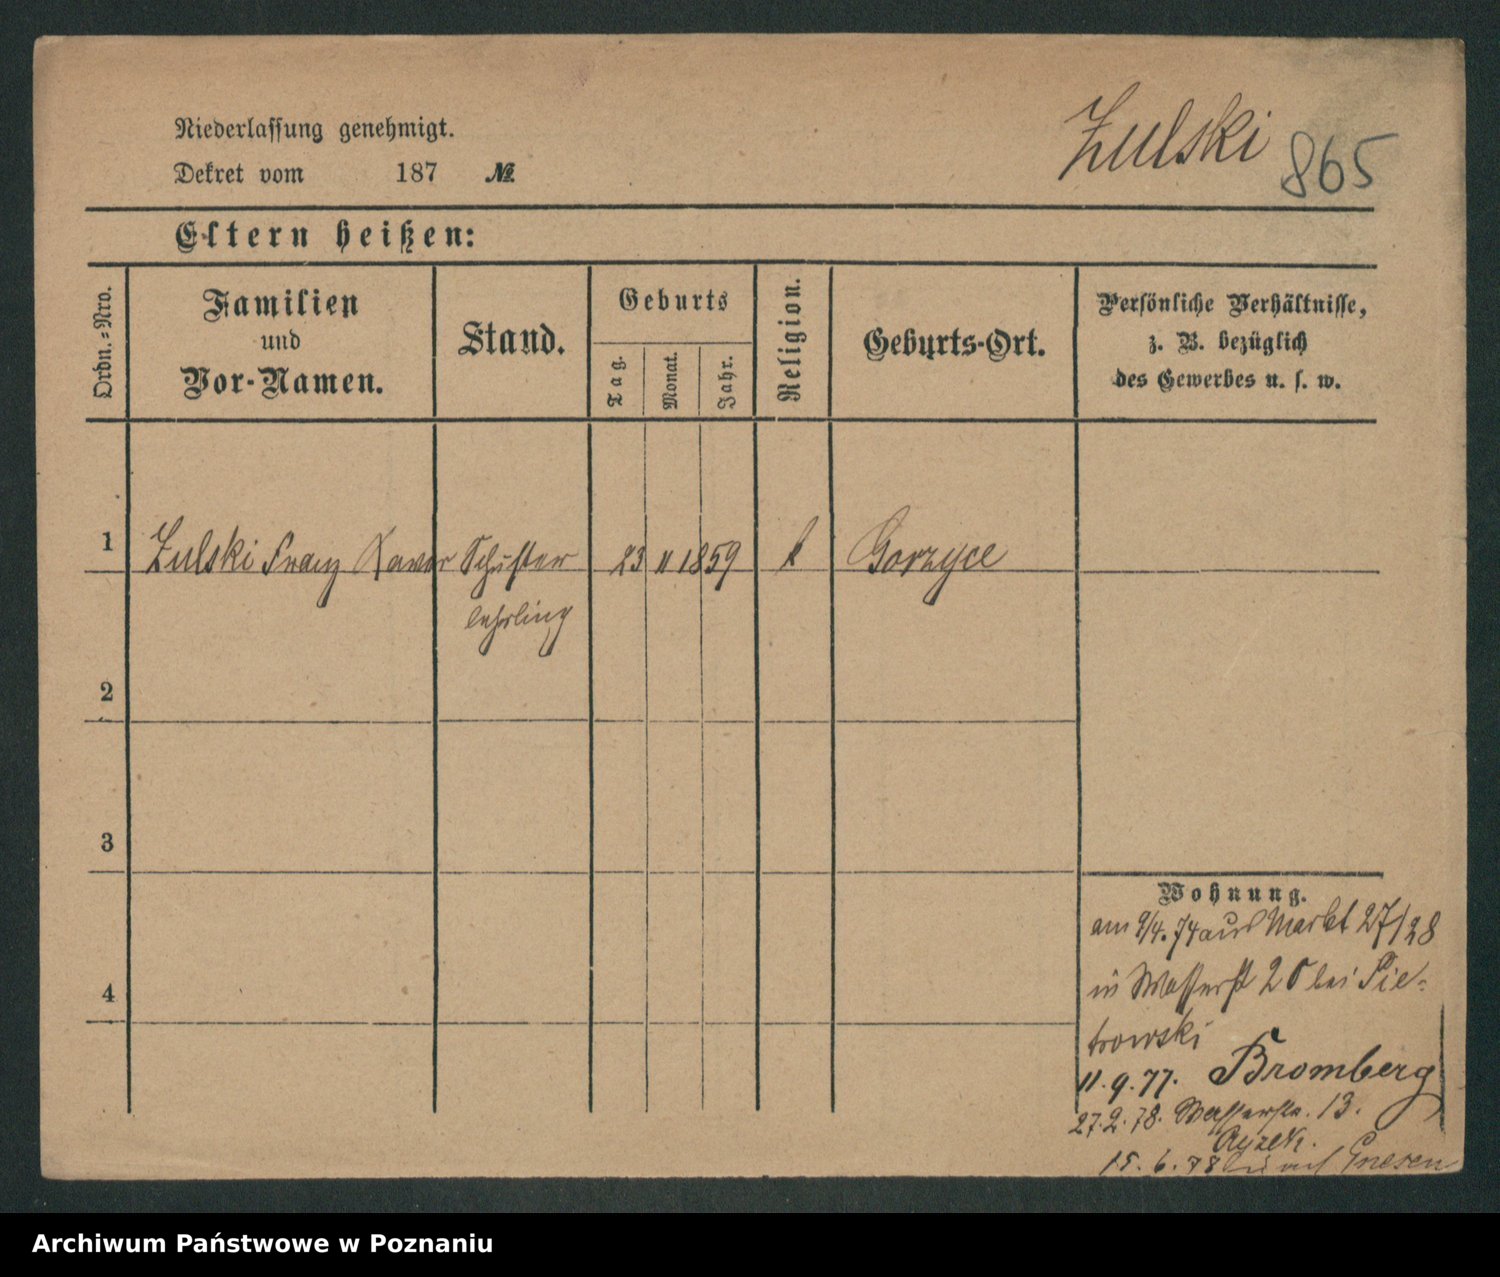 Zulski 865
Niederlassung genehmigt.
Dekret vom 187 №
Eltern heißen:
Ordn.=Nro.
Familien
und
Vor-Namen.
Stand.
Geburts
Tag.
Monat.
Jahr.
Religion.
Geburts-Ort.
Persönliche Verhältnisse,
z. B. bezüglich
des Gewerbes u. s. w.
1 Zulski Franz Xaver Schuster 23 11 1859 k Gorzyce
lehrling
2
3
4
Wohnung.
am 9/4. 74 aus Markt 27/28
in Wasserst 20 bei Pie-
trowski
11.9.77. Bromberg
27.2.78. Wasserstr. 13.
15.6.78 auf Gnesen
Archiwum Państwowe w Poznaniu